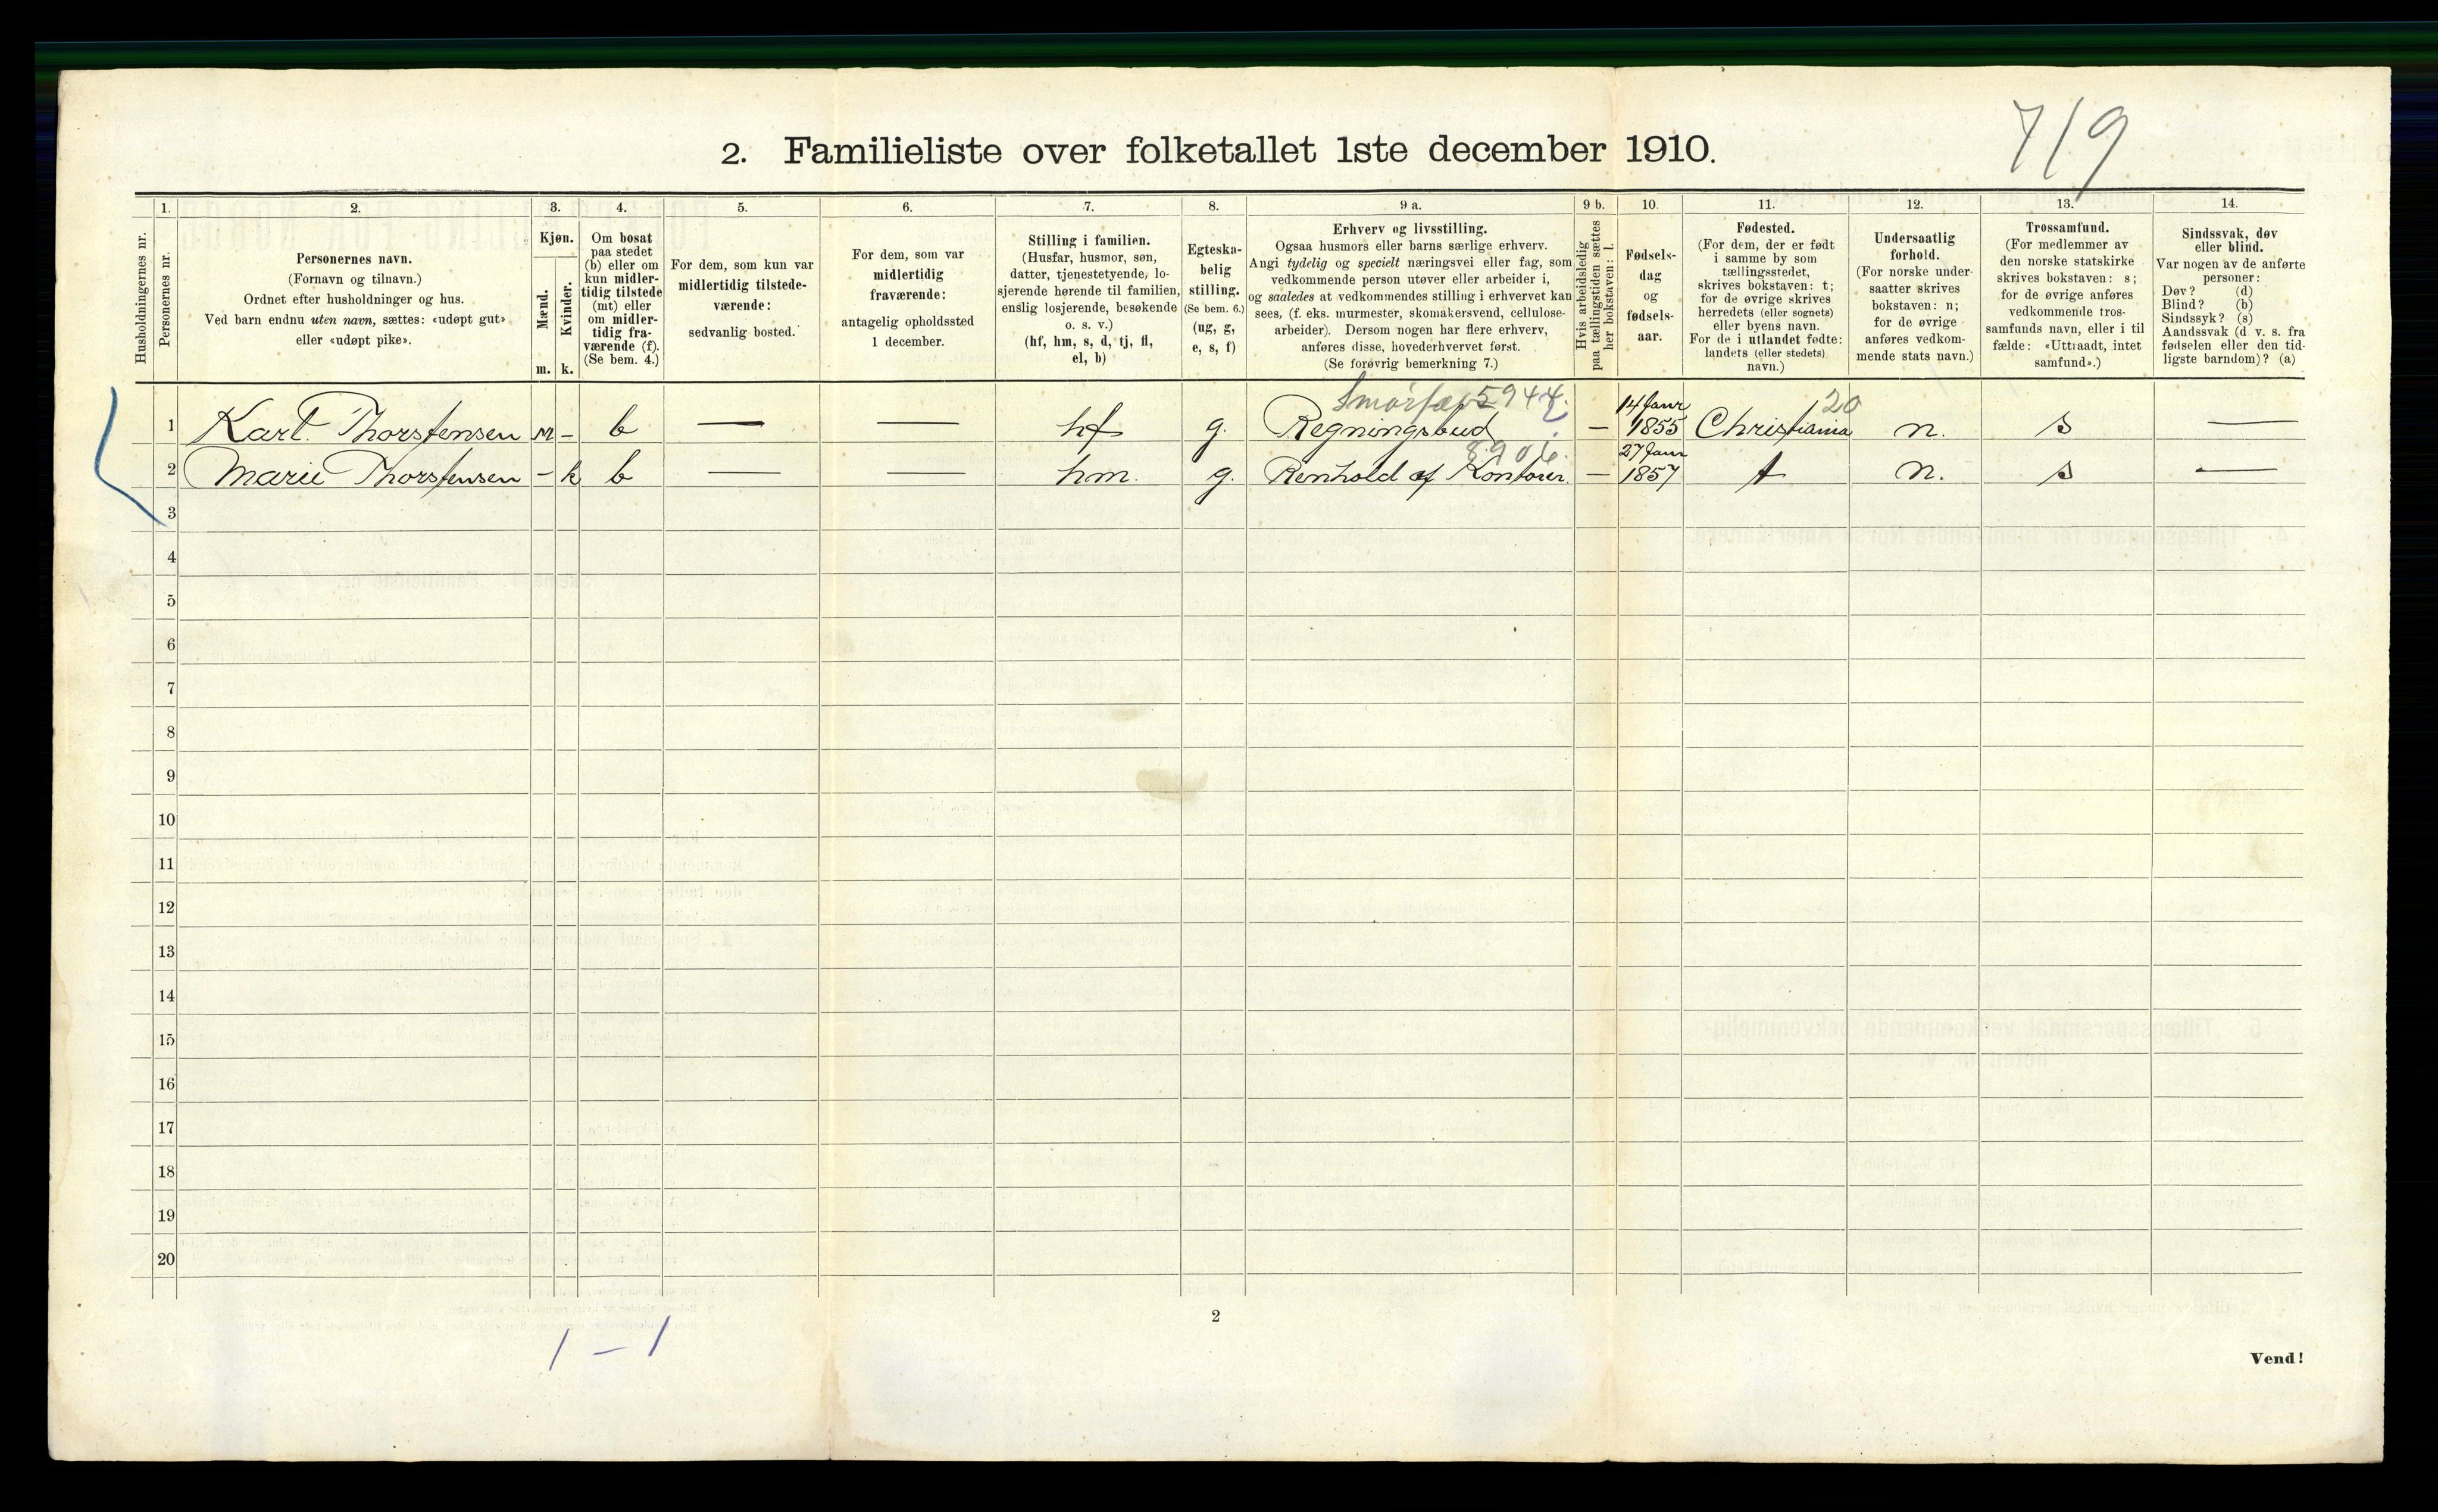 719
2. Familieliste over folketallet 1ste december 1910.
Husholdningernes nr.
1.
Personernes nr.
2.
Personernes navn.
(Fornavn og tilnavn.)
Ordnet efter husholdninger og hus.
Ved barn endnu uten navn, sættes: «udøpt gut»
eller «udøpt pike».
3.
Kjøn.
Mænd.
Kvinder.
m. k.
4.
Om bosat
paa stedet
(b) eller om
kun midler-
tidig tilstede
(mt) eller
om midler-
tidig fra-
værende (f).
(Se bem. 4.)
5.
For dem, som kun var
midlertidig tilstede-
værende:
sedvanlig bosted.
6.
For dem, som var
midlertidig
fraværende:
antagelig opholdssted
1 december.
7.
Stilling i familien.
(Husfar, husmor, søn,
datter, tjenestetyende, lo-
sjerende hørende til familien,
enslig losjerende, besøkende
o. s. v.)
(hf, hm, s, d, tj, fl,
el, b)
8.
Egteska-
belig
stilling.
(Se bem. 6.)
(ug, g,
e, s, f)
9 a.
Erhverv og livsstilling.
Ogsaa husmors eller barns særlige erhverv.
Angi tydelig og specielt næringsvei eller fag, som
vedkommende person utøver eller arbeider i,
og saaledes at vedkommendes stilling i erhvervet kan
sees, (f. eks. murmester, skomakersvend, cellulose-
arbeider). Dersom nogen har flere erhverv,
anføres disse, hovederhvervet først.
(Se forøvrig bemerkning 7.)
9 b.
Hvis arbeidsledig
paa tællingstiden sættes
her bokstaven: l.
10.
Fødsels-
dag
og
fødsels-
aar.
11.
Fødested.
(For dem, der er født
i samme by som
tællingsstedet,
skrives bokstaven: t;
for de øvrige skrives
herredets (eller sognets)
eller byens navn.
For de i utlandet fødte:
landets (eller stedets)
navn.)
12.
Undersaatlig
forhold.
(For norske under-
saatter skrives
bokstaven: n;
for de øvrige
anføres vedkom-
mende stats navn.)
13.
Trossamfund.
(For medlemmer av
den norske statskirke
skrives bokstaven: s;
for de øvrige anføres
vedkommende tros-
samfunds navn, eller i til-
fælde: «Uttraadt, intet
samfund».)
14.
Sindssvak, døv
eller blind.
Var nogen av de anførte
personer:
Døv? (d)
Blind? (b)
Sindssyk? (s)
Aandssvak (d. v. s. fra
fødselen eller den tid-
ligste barndom)? (a)
5944 20
1 Karl Thorstensen m – b — — hf g. Regningsbud – 14 Janr 1855 Christiania n. s —
2 Marie Thorstensen – k b — — hm. g. Renhold af Kontorer. – 27 Janr 1857 t n. s —
3
4
5
6
7
8
9
10
11
12
13
14
15
16
17
18
19
20
1 – 1
2
Vend!